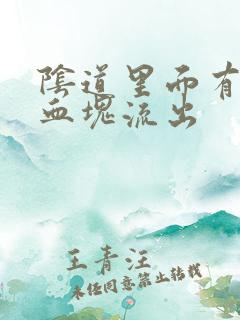 陰道里面有
血塊流出
王青汪
未经同意禁止转载